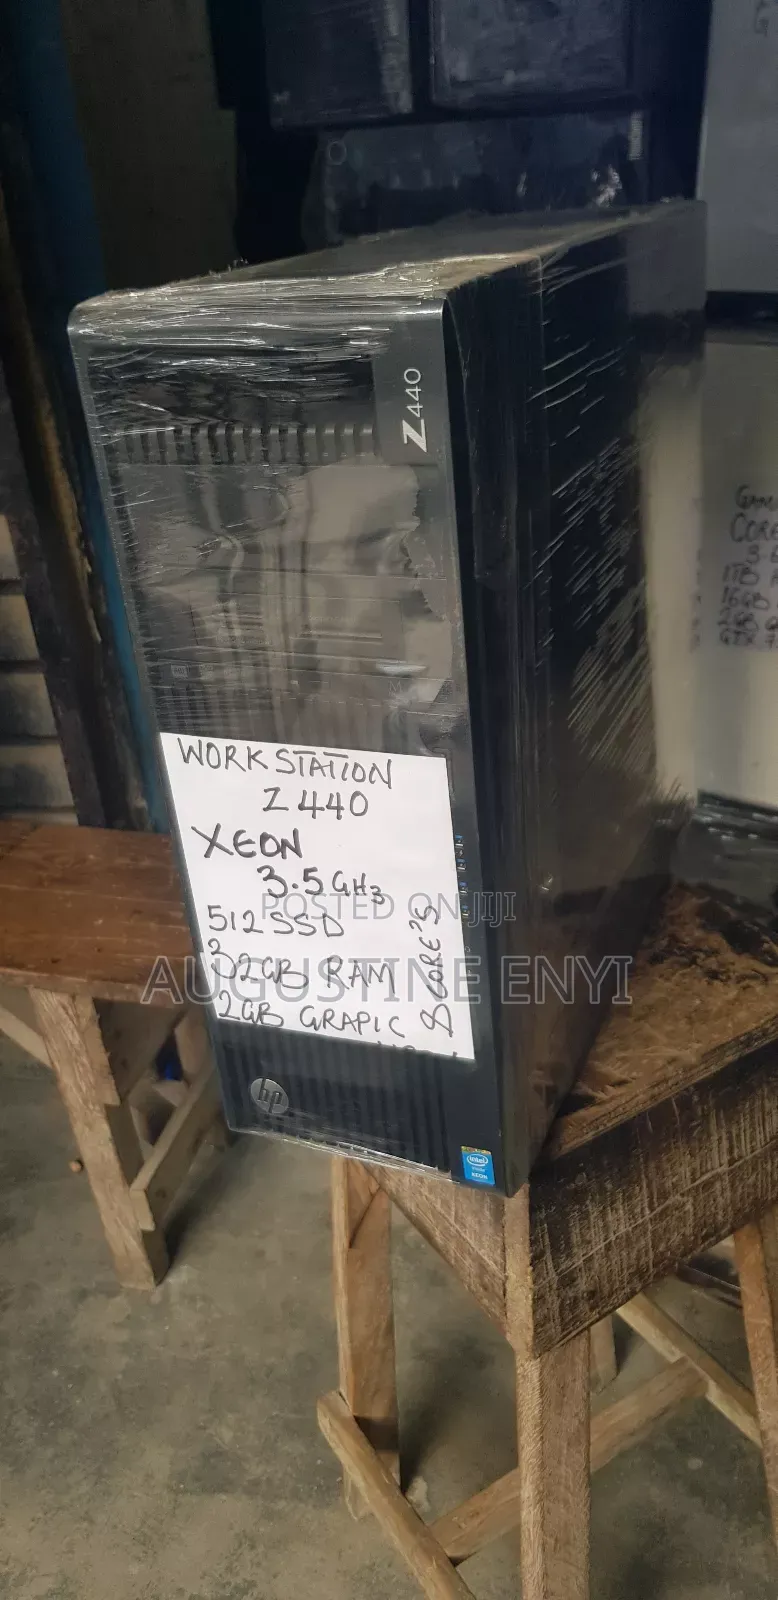 Z440
WORKSTATION
Z440
XEON
3.5GHz
512 SSD
32GB RAM
2GB GRAPIC
8 CORE'S
POSTED ON JIJI
AUGUSTINE ENYI
hp
intel
XEON
CORE
1TB
16GB
2GB